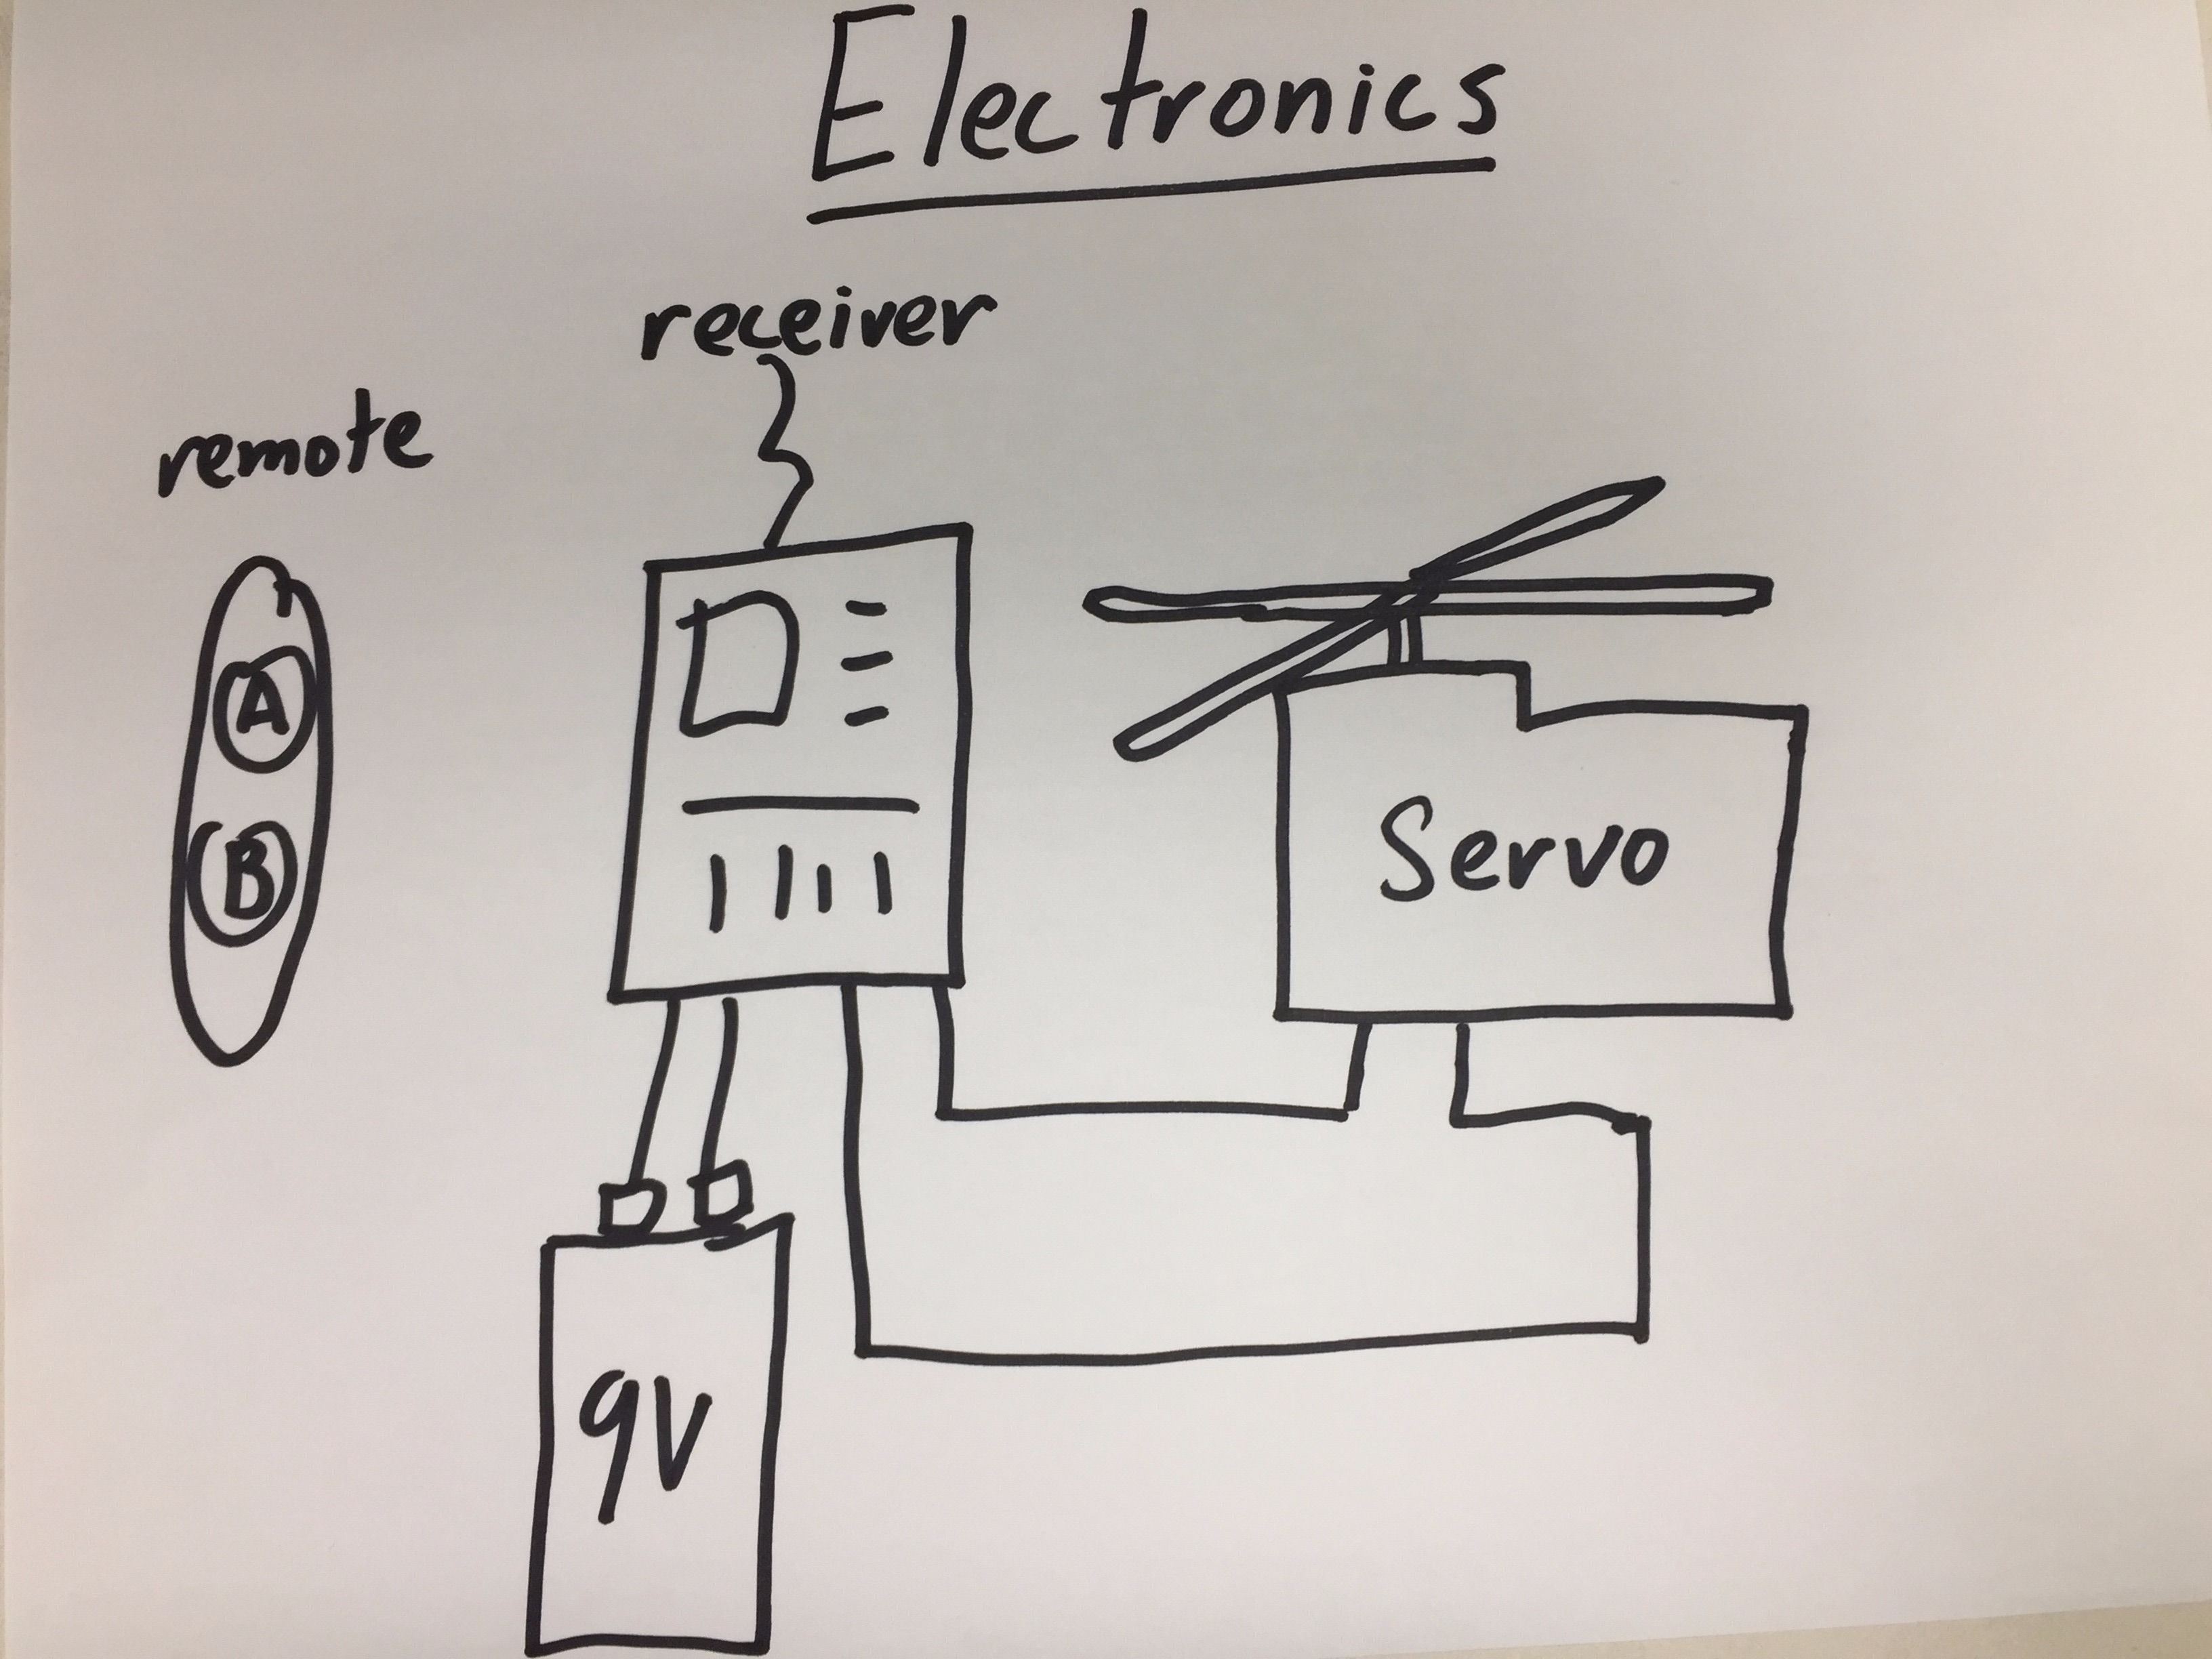 Electronics
receiver
remote
A
B
Servo
9V